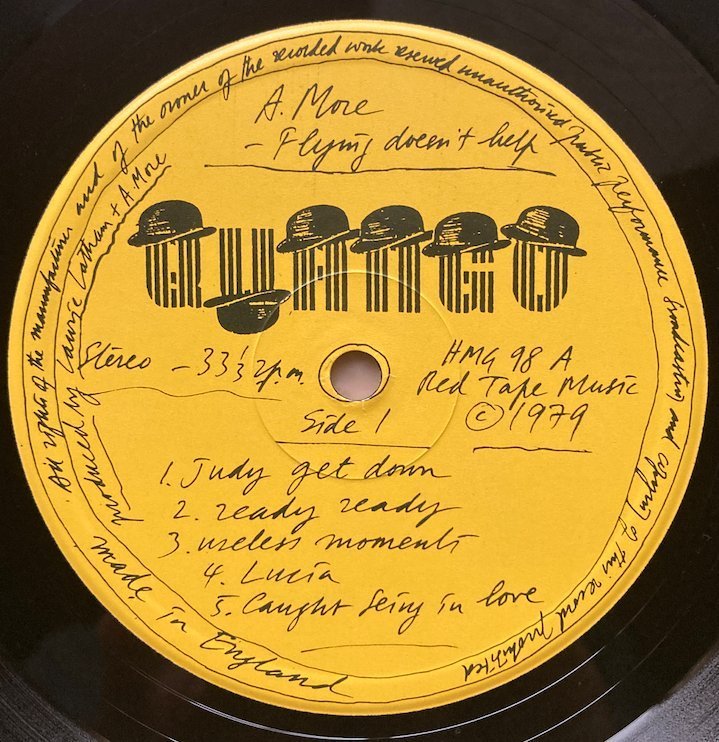 All rights of the manufacturer and of the owner of the recorded work reserved unauthorised public performance broadcasting and copying of this record prohibited
produced by Laurie Latham + A. More
A. More
- Flying doesn't help
QUANGO
Stereo - 33 1/3 r.p.m.
HMG 98 A
Red Tape Music
© 1979
Side 1
1. Judy get down
2. ready ready
3. useless moments
4. Lucia
5. Caught being in love
made in England